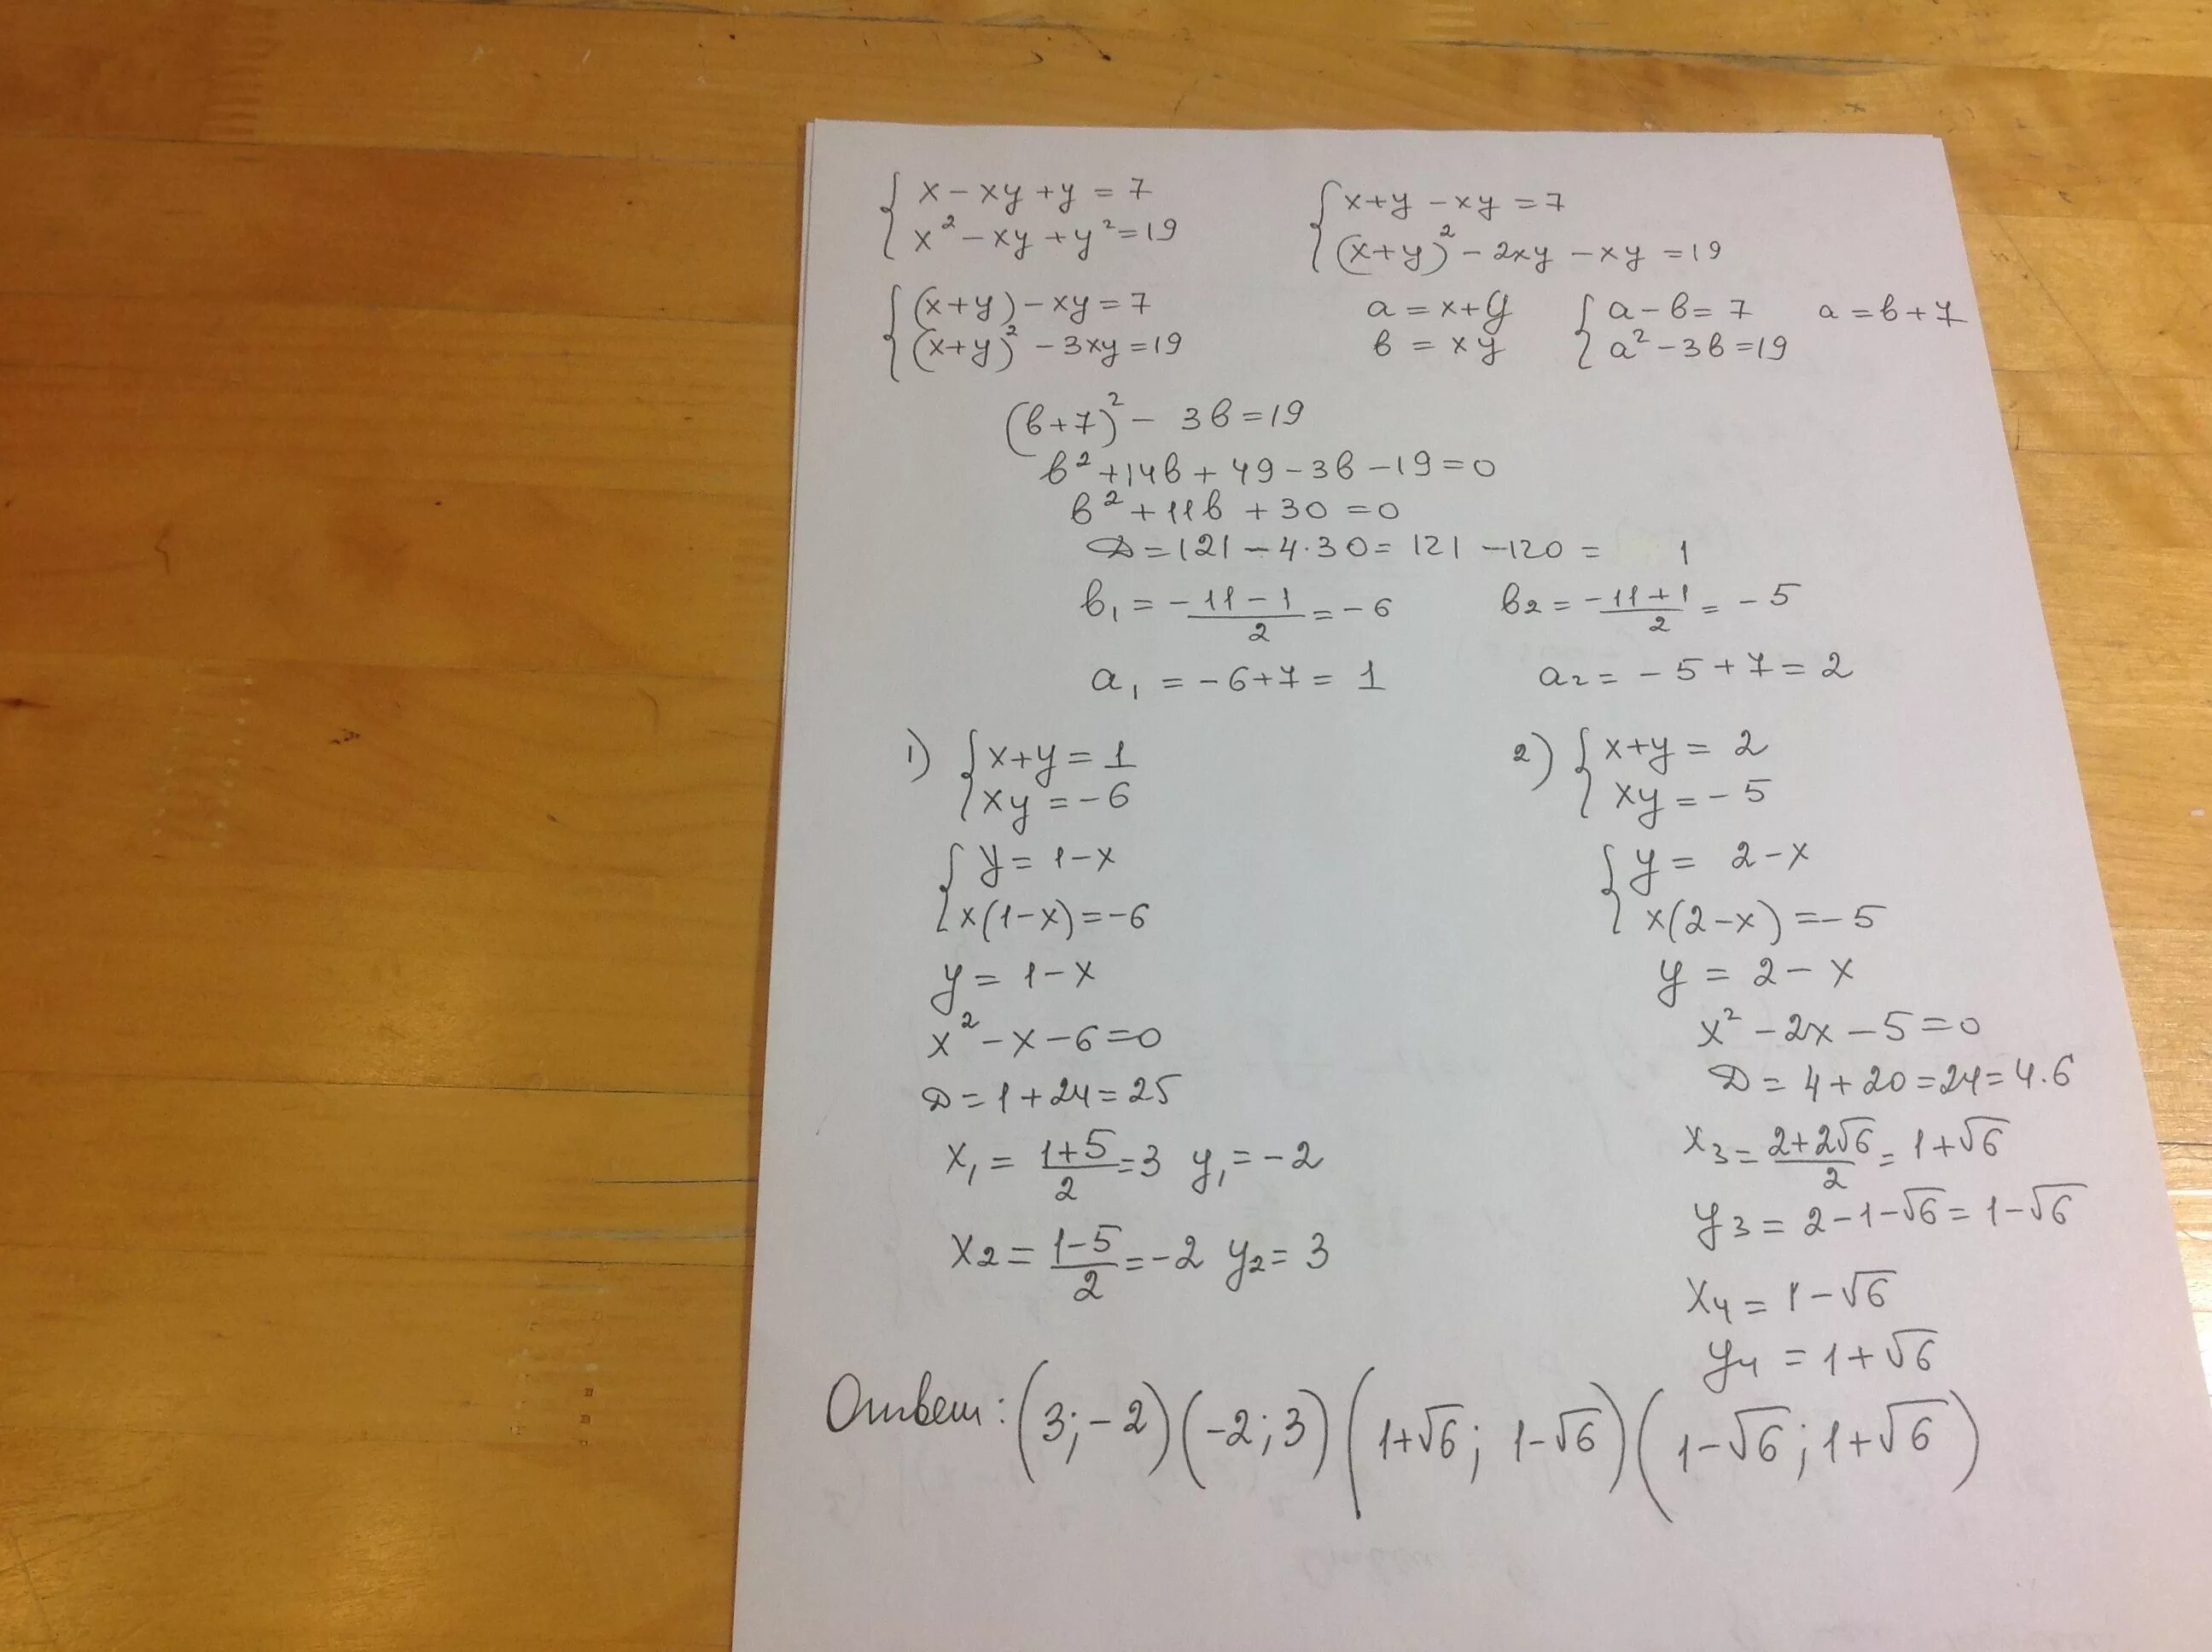 { x - xy + y = 7
x² - xy + y² = 19
{ x+y - xy = 7
(x+y)² - 2xy - xy = 19
{ (x+y) - xy = 7
(x+y)² - 3xy = 19
a = x+y
в = xy
{ a - в = 7
a² - 3в = 19
a = в + 7
(в+7)² - 3в = 19
в² + 14в + 49 - 3в - 19 = 0
в² + 11в + 30 = 0
D = 121 - 4·30 = 121 - 120 = 1
в₁ = (-11 - 1)/2 = -6
в₂ = (-11 + 1)/2 = -5
a₁ = -6 + 7 = 1
a₂ = -5 + 7 = 2
1) { x+y = 1
xy = -6
{ y = 1 - x
x(1-x) = -6
y = 1 - x
x² - x - 6 = 0
D = 1 + 24 = 25
x₁ = (1+5)/2 = 3 y₁ = -2
x₂ = (1-5)/2 = -2 y₂ = 3
2) { x+y = 2
xy = -5
{ y = 2 - x
x(2-x) = -5
y = 2 - x
x² - 2x - 5 = 0
D = 4 + 20 = 24 = 4·6
x₃ = (2+2√6)/2 = 1+√6
y₃ = 2 - 1 - √6 = 1 - √6
x₄ = 1 - √6
y₄ = 1 + √6
Ответ: (3; -2) (-2; 3) (1+√6; 1-√6) (1-√6; 1+√6)